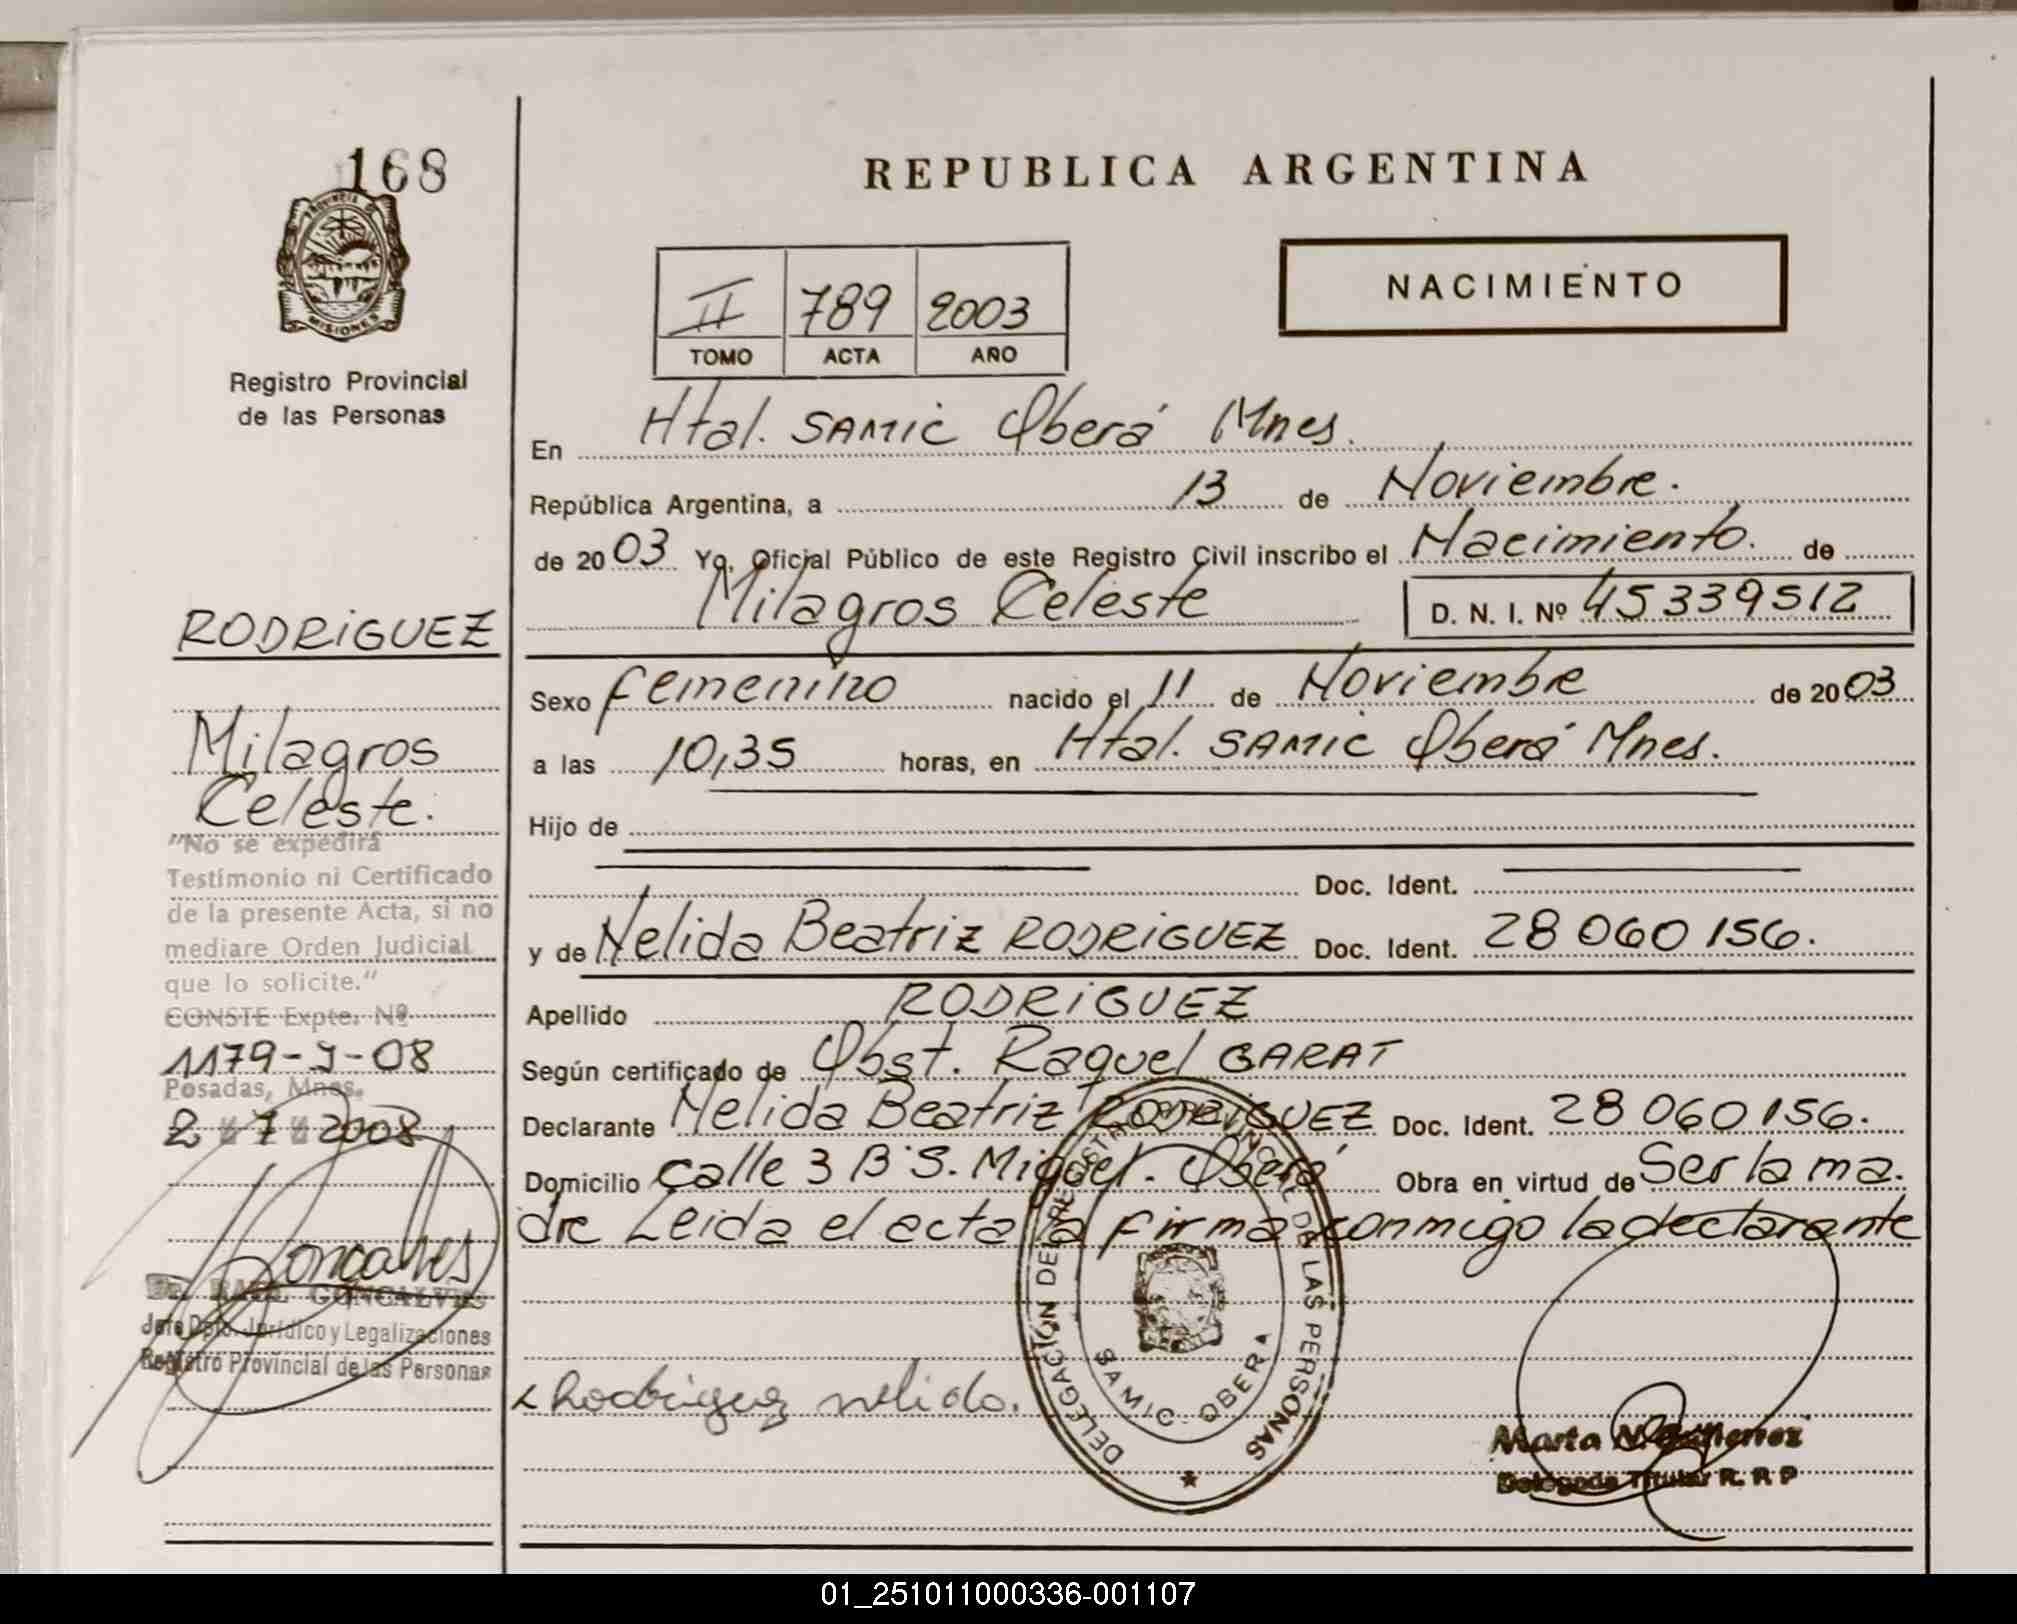 168
PROVINCIA DE
MISIONES
Registro Provincial
de las Personas
RODRIGUEZ
Milagros
Celeste.
"No se expedirá
Testimonio ni Certificado
de la presente Acta, si no
mediare Orden Judicial
que lo solicite."
CONSTE Expte. Nº
1179-J-08
Posadas, Mnes.
2 7 2008
Goncalves
Dr. RAUL GONCALVES
Jefe Dpto. Jurídico y Legalizaciones
Registro Provincial de las Personas
REPUBLICA ARGENTINA
NACIMIENTO
II 789 2003
TOMO ACTA AÑO
En Htal. SAMIC Oberá Mnes.
República Argentina, a 13 de Noviembre.
de 2003 Yo, Oficial Público de este Registro Civil inscribo el Nacimiento. de
Milagros Celeste D. N. I. Nº 45339512
Sexo femenino nacido el 11 de Noviembre de 2003
a las 10,35 horas, en Htal. SAMIC Oberá Mnes.
Hijo de
Doc. Ident.
y de Nelida Beatriz RODRIGUEZ Doc. Ident. 28 060 156.
Apellido RODRIGUEZ
Según certificado de Obst. Raquel GARAT
Declarante Nelida Beatriz RODRIGUEZ Doc. Ident. 28 060 156.
Domicilio calle 3 B S. Miguel. Oberá Obra en virtud de Ser la ma.
dre Leida el acta la firma conmigo la declarante
DELEGACIÓN DEL REGISTRO PROVINCIAL DE LAS PERSONAS
SAMIC - OBERA
Rodriguez nelida.
Marta N. Gutierrez
Delegada Titular R. P. P
01_251011000336-001107